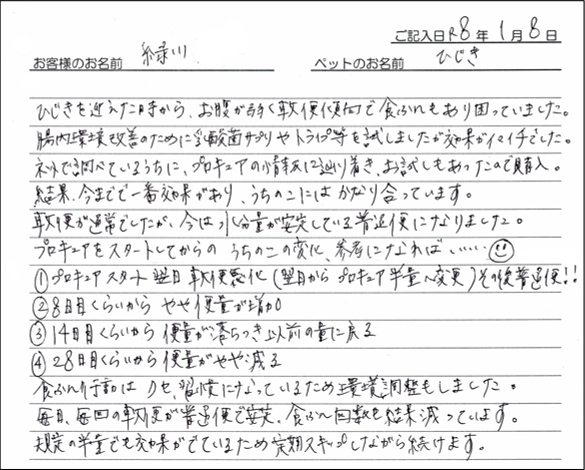 ご記入日 R8年 1月8日
お客様のお名前 緑川 ペットのお名前 ひじき
ひじきを迎えた時から、お腹が弱く軟便傾向で食ふんもあり困っていました。
腸内環境改善のために乳酸菌サプリやトライプ等を試しましたが効果がイマイチでした。
ネットで調べているうちに、プロキュアの情報に辿り着き、お試しもあったので購入。
結果、今までで一番効果があり、うちのこにはかなり合っています。
軟便が通常でしたが、今は水分量が安定している普通便になりました。
プロキュアをスタートしてからの うちのこの変化、参考になれば、……
① プロキュアスタート 翌日 軟便悪化 (翌日から プロキュア半量へ変更) その後普通便!!
② 8日目くらいから やや便量が増加
③ 14日目くらいから 便量が落ちつき以前の量に戻る
④ 28日目くらいから 便量がやや減る
食ふん行動は クセ、習慣になっているため環境調整もしました。
毎日、毎回の軟便が普通便で安定、食ふん回数も結果減っています。
規定の半量でも効果がでているため定期スキップしながら続けます。